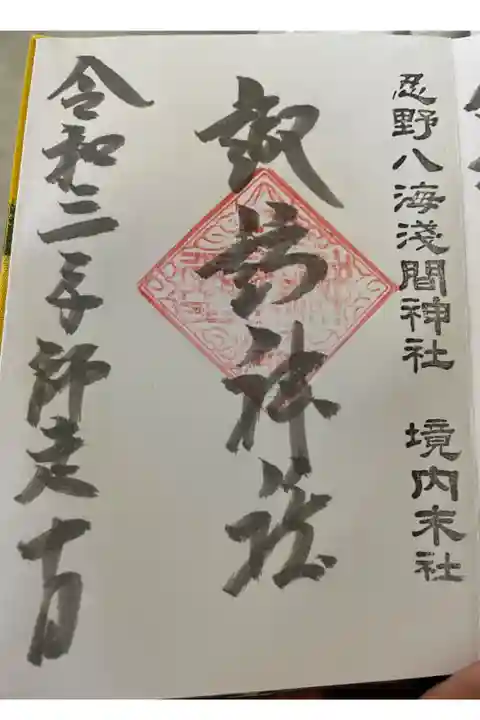 忍野八海浅間神社　境内末社
諏訪神社
令和三年師走十日